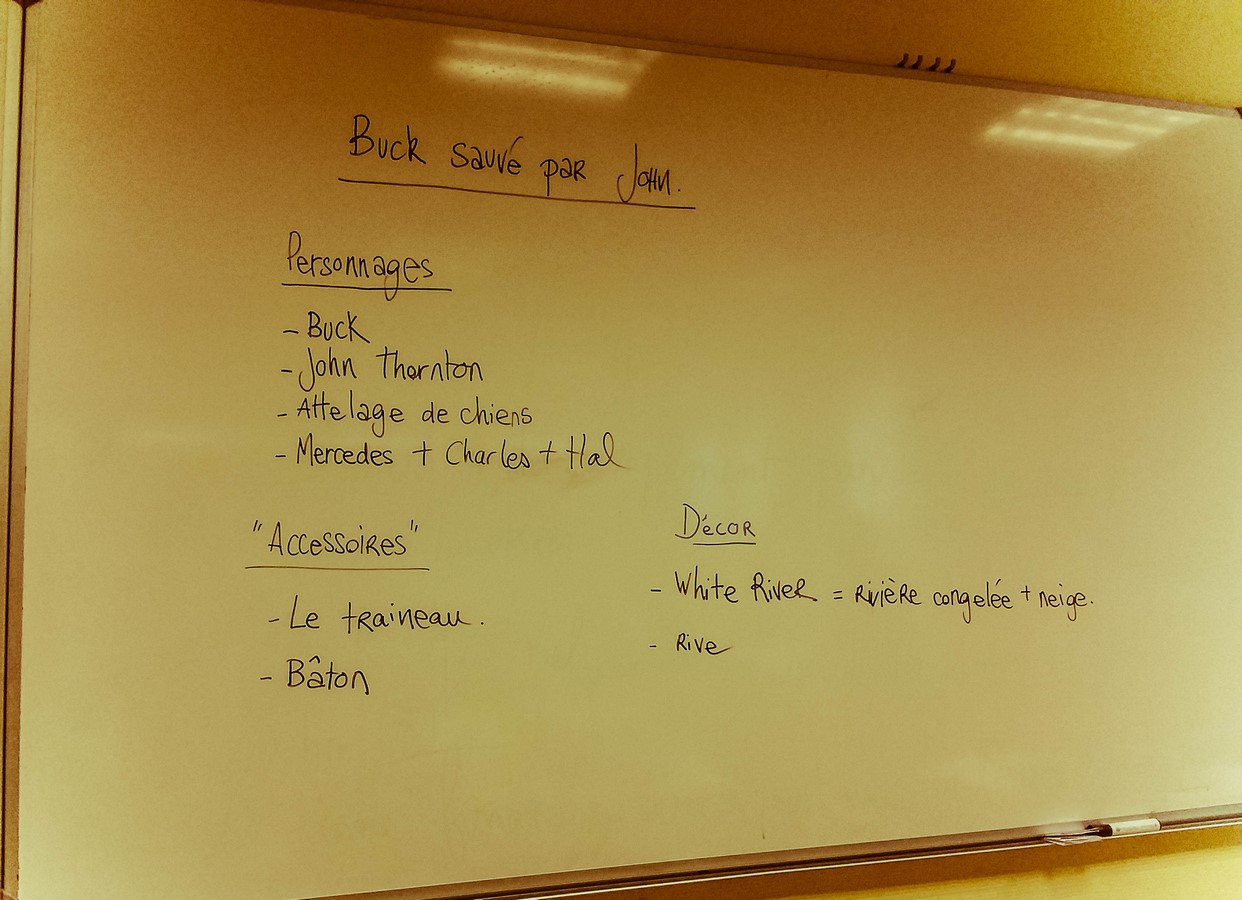 Buck sauvé par John.
Personnages
- Buck
- John Thornton
- Attelage de chiens
- Mercedes + Charles + Hal
"Accessoires"
- Le traineau.
- Bâton
Décor
- White River = rivière congelée + neige.
- Rive